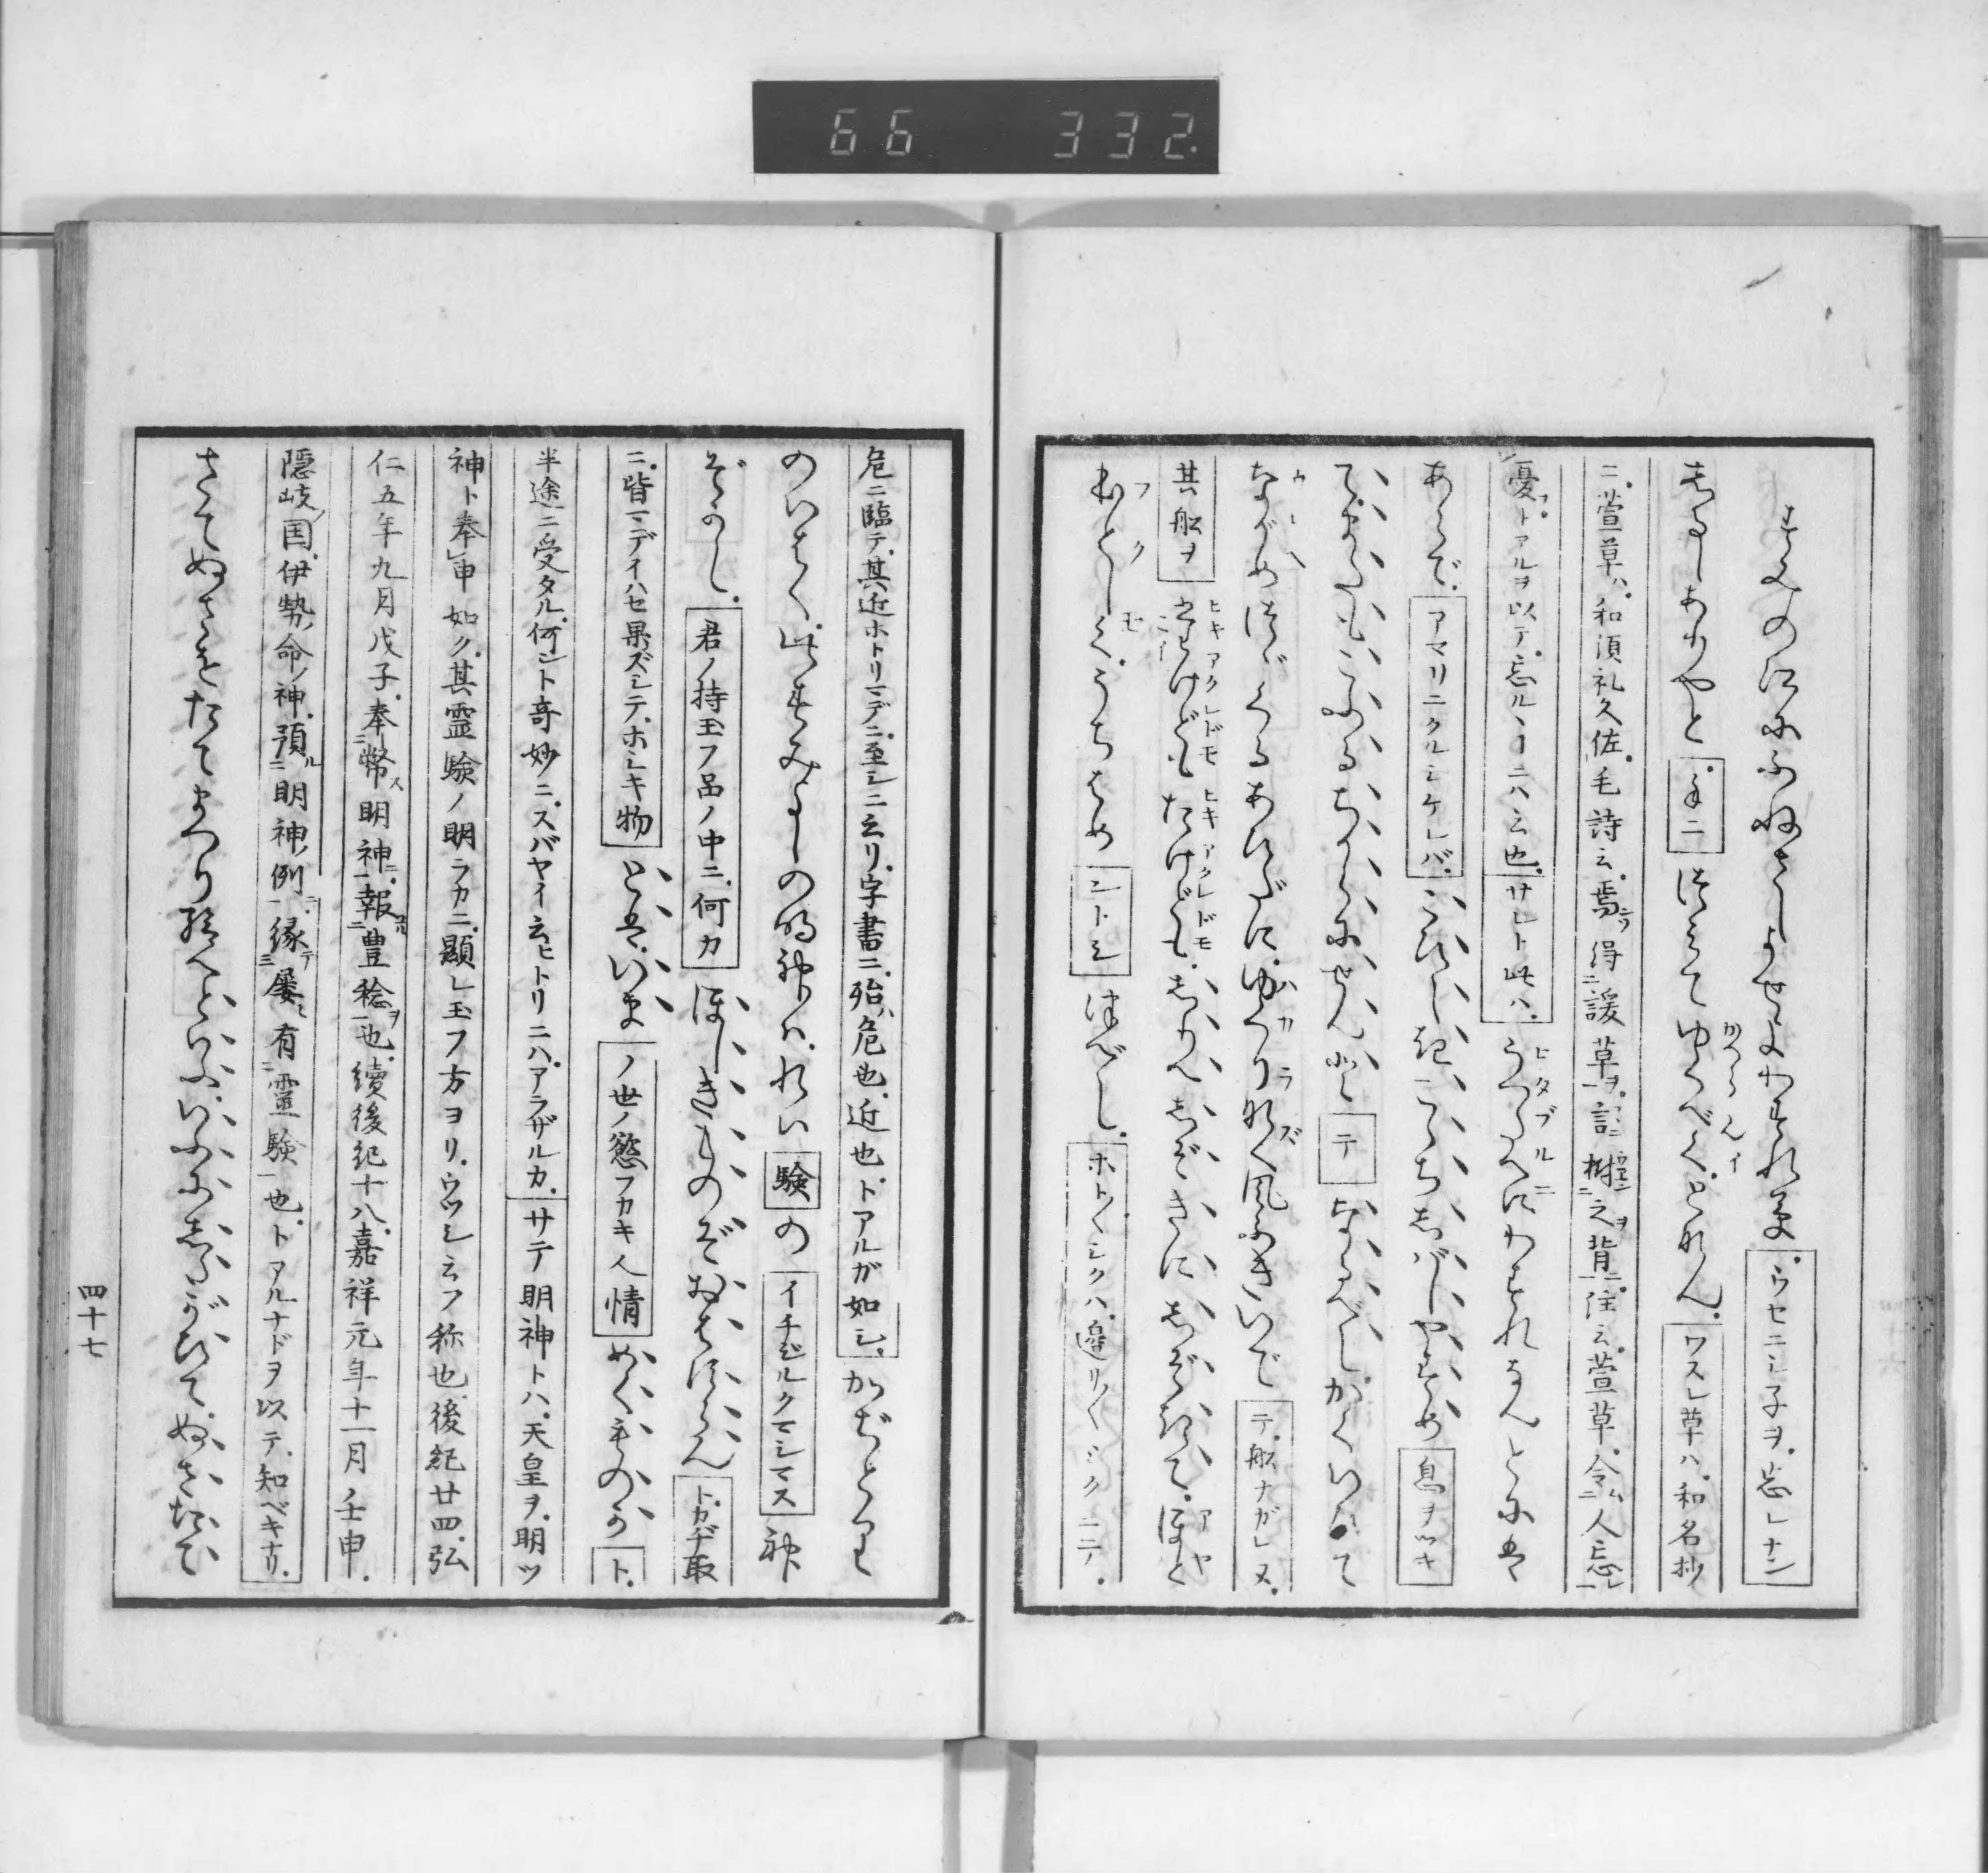 66 332.
すみの江にふねさしよせよわすれ草ウセニシ子ヲ忘レナン
しるしありやとミニつみてゆくべくとなん。ワスレ草ハ和名抄
ニ萱草ハ和須礼久佐毛詩云焉得諼草言樹之背注云萱草令人忘
憂トアルヲ以テ忘ルヽ
ニハ云也サレド此ハうつたへにわすれなんとには
あらでアマリニクルシケレバこひしきこゝちしばしやすめ息ヲツキ
てまたもこふるちからにせんとテなるべしかくいひて
ながめつゞくるあひだにゆくりなく風ふきいでテ船ナガレヌ
其船ヲこげどもこげどもしりへしぞきにしぞきてほと
ほとしくうちはめシトシつべし。ホトホトシクハ邊リ
危ニ臨テ其近ホトリマデニ至シニ云リ字書ニ殆ハ危也近也トアルガ如シかぢとり
のいはく此すみよしの明神はれい験のイチジルクマシマス神
ぞかし君ノ持玉フ品ノ中ニ何カほしきものぞおはすらんトカヂ取
ニ皆マデイハセ果ズシテホシキ物とはいまノ世ノ慾フカキ人情めくものかト
半途ニ受タル何ント奇妙ニスバヤイ云ヒトリニハアラザルカサテ明神トハ天皇ヲ明ツ
神ト奉申如ク其霊験ノ明ラカニ顕レ玉フ方ヨリウツシ云フ称也後紀廿四弘
仁五年九月戊子奉幣明神報豊稔也續後紀十八嘉祥元年十一月壬申
隠岐国伊勢命ノ神預明神例縁屡有霊験也トアルナドヲ以テ知ベキナリ
さてぬさをたてまつり給へといふいふにしたがひてぬさたて
四十七